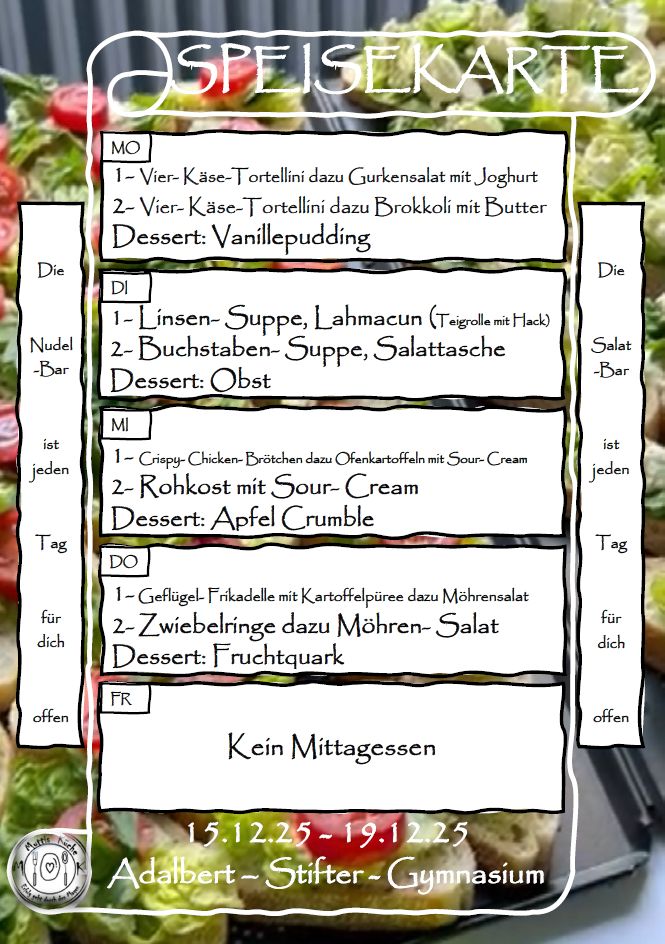 SPEISEKARTE
MO
1- Vier- Käse-Tortellini dazu Gurkensalat mit Joghurt
2- Vier- Käse-Tortellini dazu Brokkoli mit Butter
Dessert: Vanillepudding
DI
1- Linsen- Suppe, Lahmacun (Teigrolle mit Hack)
2- Buchstaben- Suppe, Salattasche
Dessert: Obst
MI
1- Crispy- Chicken- Brötchen dazu Ofenkartoffeln mit Sour- Cream
2- Rohkost mit Sour- Cream
Dessert: Apfel Crumble
DO
1- Geflügel- Frikadelle mit Kartoffelpüree dazu Möhrensalat
2- Zwiebelringe dazu Möhren- Salat
Dessert: Fruchtquark
FR
Kein Mittagessen
Die
Nudel
-Bar
ist
jeden
Tag
für
dich
offen
Die
Salat
-Bar
ist
jeden
Tag
für
dich
offen
15.12.25 - 19.12.25
Adalbert – Stifter - Gymnasium
Muttis Küche
M K
Liebe geht durch den Magen